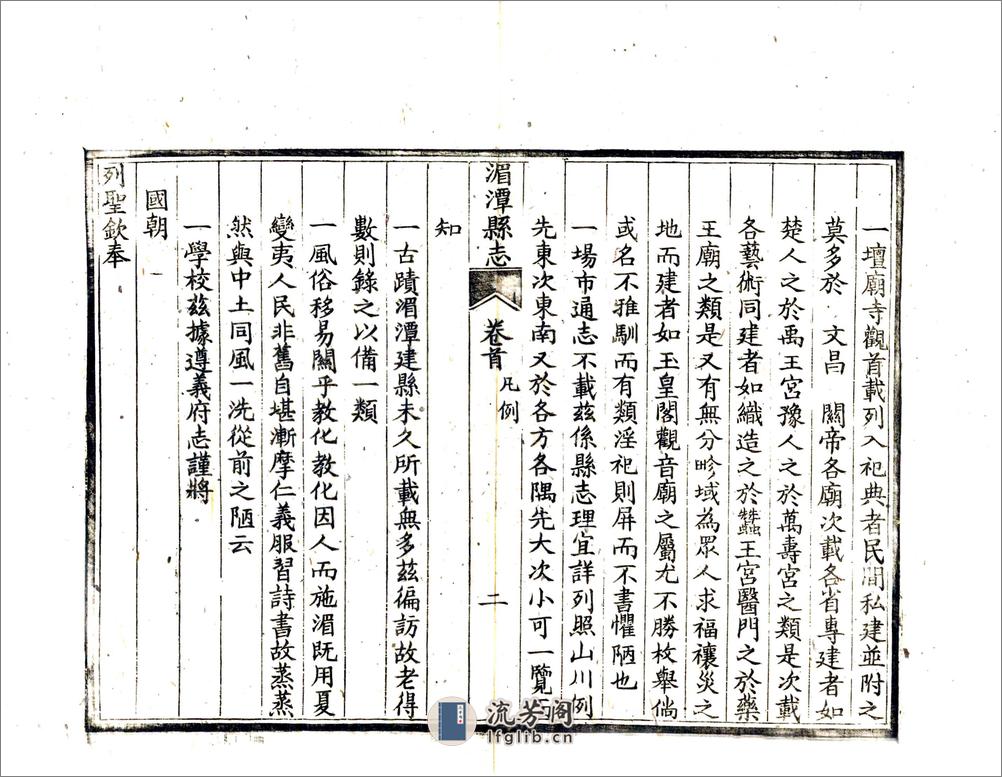 一壇廟寺觀首載列入祀典者民間私建並附之
莫多於　文昌　關帝各廟次載各省專建者如
楚人之於禹王宮豫人之於萬壽宮之類是次載
各藝術同建者如織造之於蠶王宮醫門之於藥
王廟之類是又有無分畛域為眾人求福禳災之
地而建者如玉皇閣觀音廟之屬尤不勝枚舉倘
或名不雅馴而有類淫祀則屏而不書懼陋也
一場市通志不載茲係縣志理宜詳列照山川例
先東次東南又於各方各隅先大次小可一覽而
湄潭縣志　卷首　凡例　二
知
一古蹟湄潭建縣未久所載無多茲徧訪故老得
數則錄之以備一類
一風俗移易關乎教化教化因人而施湄既用夏
變夷人民非舊自堪漸摩仁義服習詩書故蒸蒸
然與中土同風一洗從前之陋云
一學校茲據遵義府志謹將
國朝
列聖欽奉
流芳閣
lfglib.cn